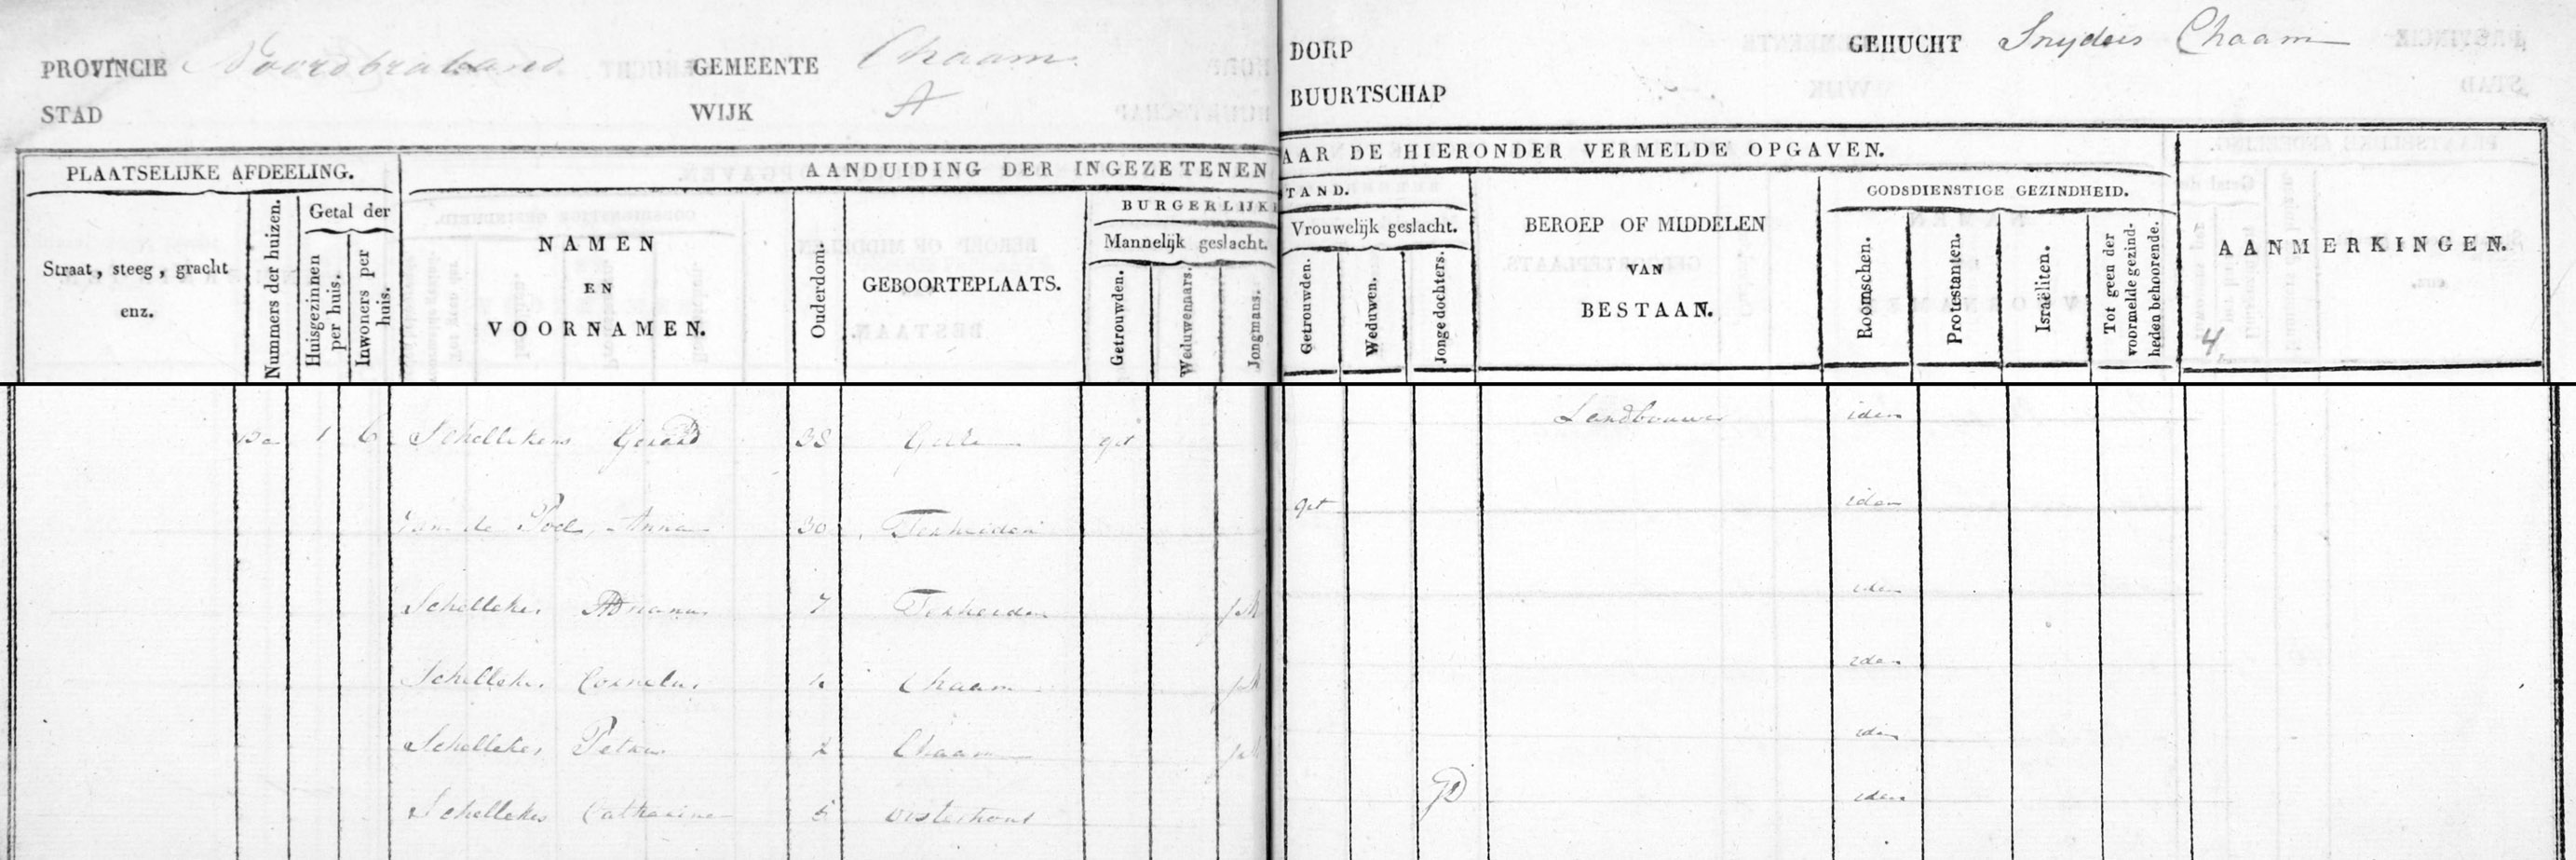 PROVINCIE Noordbraband GEMEENTE Chaam
STAD WIJK A
DORP GEHUCHT Snyders Chaam
BUURTSCHAP
PLAATSELIJKE AFDEELING. AANDUIDING DER INGEZETENEN AAR DE HIERONDER VERMELDE OPGAVEN.
Straat, steeg, gracht
enz.
Nummers der huizen.
Getal der
Huisgezinnen
per huis.
Inwoners per
huis.
NAMEN
EN
VOORNAMEN.
Ouderdom.
GEBOORTEPLAATS.
BURGERLIJKE
Mannelijk geslacht.
Getrouwden.
Weduwenaars.
Jongmans.
TAND.
Vrouwelijk geslacht.
Getrouwden.
Weduwen.
Jonge dochters.
BEROEP OF MIDDELEN
VAN
BESTAAN.
GODSDIENSTIGE GEZINDHEID.
Roomschen.
Protestanten.
Israëliten.
Tot geen der
voormelde gezind-
heden behoorende.
AANMERKINGEN.
4
1 6 Schellekens Gerard 38 Gilze get Landbouwer idem
van de Poel, Anna 30 Terheiden get idem
Schellekes Adrianus 7 Terheiden JM idem
Schellekes Cornelus 4 Chaam JM idem
Schellekes Petrus 2 Chaam JM idem
Schellekes Catharina 5 Oosterhout JD idem